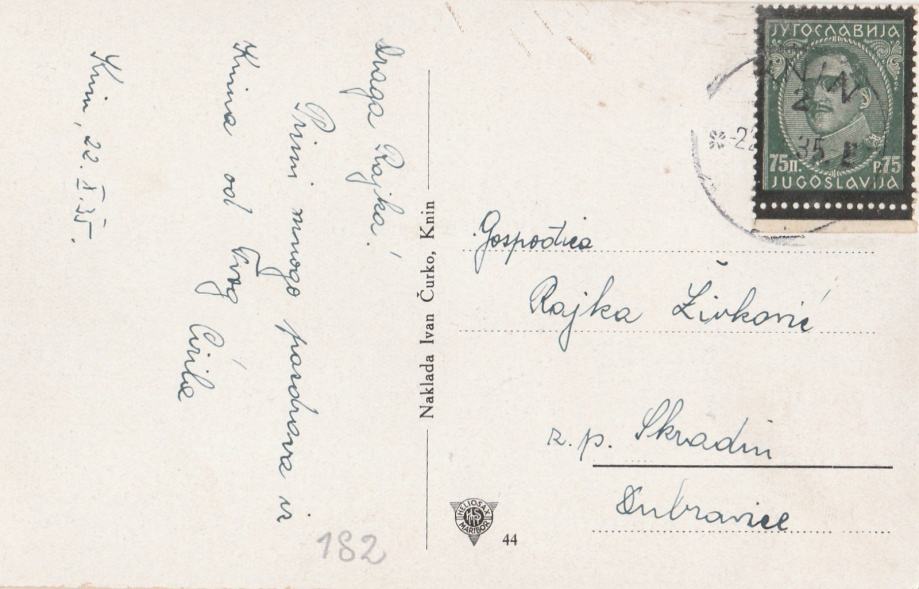 Draga Rajka!
Primi mnogo pozdrava iz
Knina od tvog Ćirila
Knin, 22. X. 35.
Naklada Ivan Čurko, Knin
ЈУГОСЛАВИЈА
75п. P.75
JUGOSLAVIJA
KNIN
2
-22 35
Gospođica
Rajka Živković
z.p. Skradin
Dubravice
HELIOSAX
MARIBOR
44
182